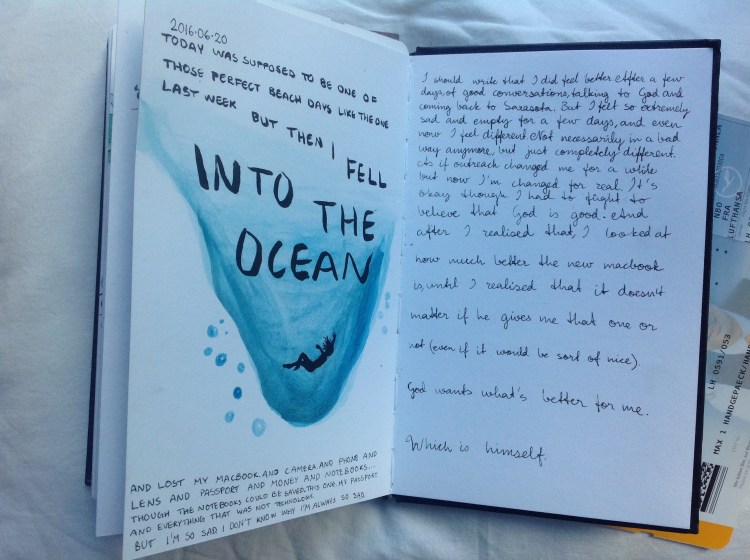 2016·06·20
TODAY WAS SUPPOSED TO BE ONE OF
THOSE PERFECT BEACH DAYS LIKE THE ONE
LAST WEEK BUT THEN I FELL
INTO THE
OCEAN
AND LOST MY MACBOOK. AND CAMERA. AND PHONE AND
LENS AND PASSPORT AND MONEY AND NOTEBOOKS...
THOUGH THE NOTEBOOKS COULD BE SAVED. THIS ONE. MY PASSPORT
AND EVERYTHING THAT WAS NOT TECHNOLOGY.
BUT I'M SO SAD. I DON'T KNOW WHY I'M ALWAYS SO SAD.
I should write that I did feel better after a few
days of good conversations, talking to God and
coming back to Sarasota. But I felt so extremely
sad and empty for a few days, and even
now I feel different. Not necessarily in a bad
way anymore, but just completely different.
As if outreach changed me for a while
but now I'm changed for real. It's
okay though. I had to fight to
believe that God is good. And
after I realised that, I looked at
how much better the new macbook
is, until I realised that it doesn't
matter if he gives me that one or
not (even if it would be sort of nice).
God wants what's better for me.
Which is himself.
NBO
FRA
LUFTHANSA
LH 0591/053
MAX 1 HANDGEPAECK/HAN